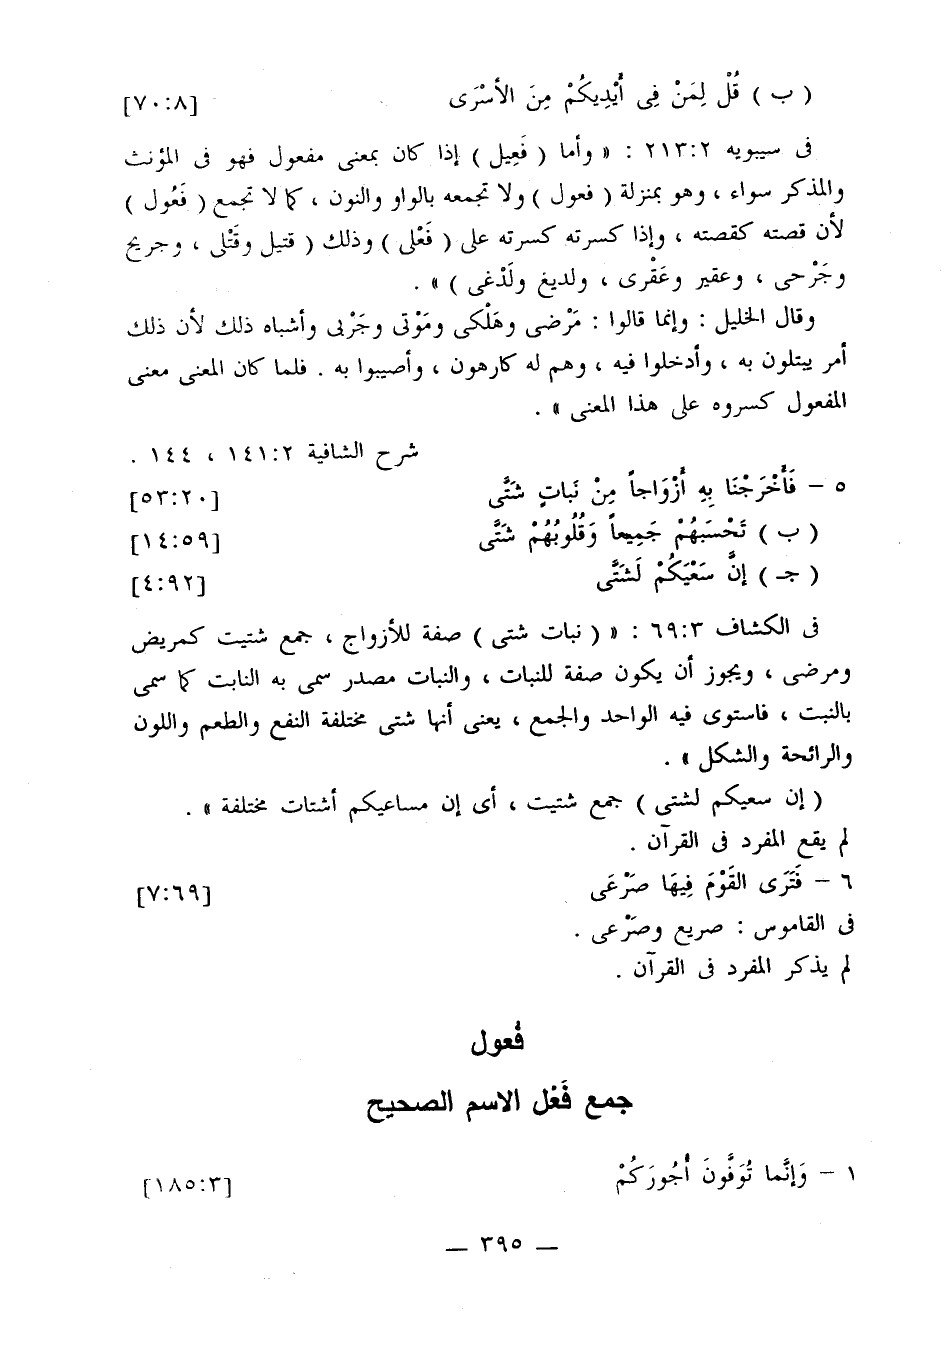 ( ب ) قُلْ لِمَنْ فِى أَيْدِيكُمْ مِنَ الأَسْرَى [٧٠:٨]
فى سيبويه ٢١٣:٢ : « وأما ( فَعِيل ) إذا كان بمعنى مفعول فهو فى المؤنث
والمذكر سواء ، وهو بمنزلة ( فعول ) ولا تجمعه بالواو والنون ، كما لا تجمع ( فَعُول )
لأن قصته كقصته ، وإذا كسرته كسرته على ( فَعْلى ) وذلك ( قتيل وقَتْلى ، وجريح
وجَرْحى ، وعقير وعَقْرى ، ولديغ ولَدْغى ) » .
وقال الخليل : وإنما قالوا : مَرْضى وهَلْكى ومَوْتى وجَرْبى وأشباه ذلك لأن ذلك
أمر يبتلون به ، وأدخلوا فيه ، وهم له كارهون ، وأصيبوا به . فلما كان المعنى معنى
المفعول كسروه على هذا المعنى » .
شرح الشافية ١٤١:٢ ، ١٤٤ .
٥ – فَأَخْرَجْنَا بِهِ أَزْوَاجاً مِنْ نَباتٍ شَتَّى [٥٣:٢٠]
( ب ) تَحْسَبُهُمْ جَمِيعاً وَقُلُوبُهُمْ شَتَّى [١٤:٥٩]
( جـ ) إنَّ سَعْيَكُمْ لَشَتَّى [٤:٩٢]
فى الكشاف ٦٩:٣ : « ( نبات شتى ) صفة للأزواج ، جمع شتيت كمريض
ومرضى ، ويجوز أن يكون صفة للنبات ، والنبات مصدر سمى به النابت كما سمى
بالنبت ، فاستوى فيه الواحد والجمع ، يعنى أنها شتى مختلفة النفع والطعم واللون
والرائحة والشكل » .
( إن سعيكم لشتى ) جمع شتيت ، أى إن مساعيكم أشتات مختلفة » .
لم يقع المفرد فى القرآن .
٦ – فَتَرَى القَوْمَ فِيهَا صَرْعَى [٧:٦٩]
فى القاموس : صريع وصَرْعى .
لم يذكر المفرد فى القرآن .
فُعول
جمع فَعْل الاسم الصحيح
١ – وَإنَّما تُوَفَّونَ أُجُورَكُمْ [١٨٥:٣]
— ٣٩٥ —